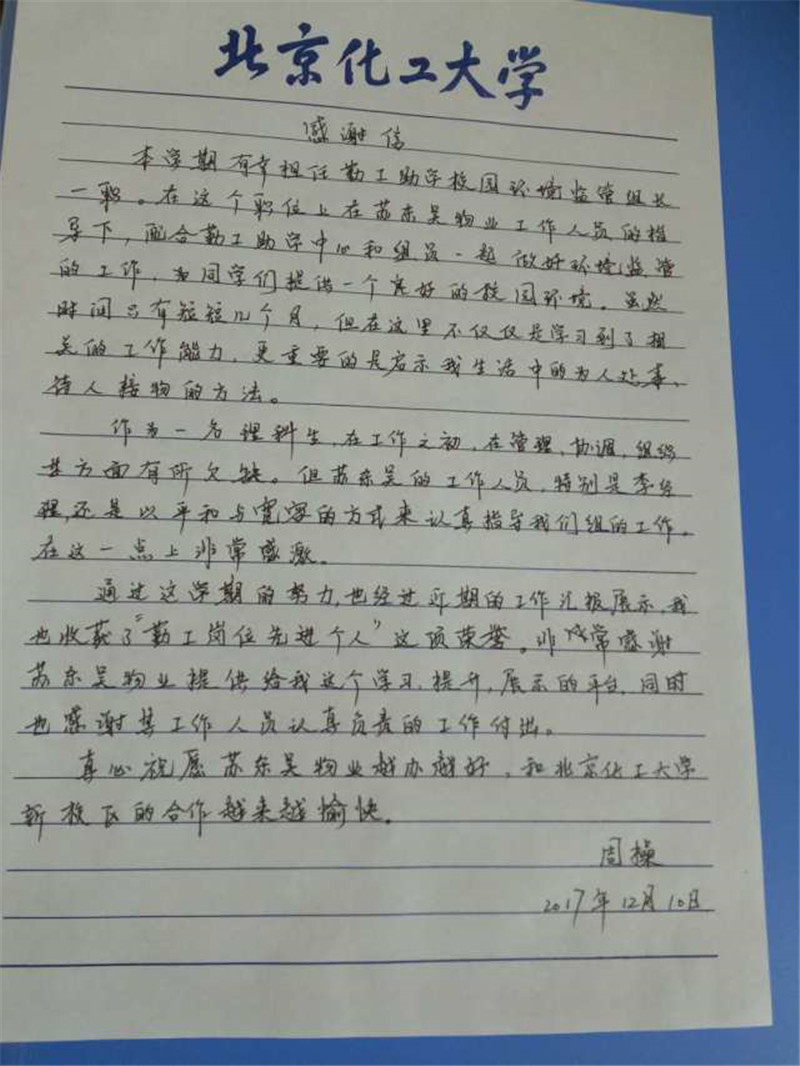 北京化工大学
感谢信
本学期有幸担任勤工助学校园环境监管组长
一职。在这个职位上在苏东吴物业工作人员的指
导下，配合勤工助学中心和组员一起做好环境监管
的工作，为同学们提供一个良好的校园环境。虽然
时间只有短短几个月，但在这里不仅仅是学习到了相
关的工作能力，更重要的是启示我生活中的为人处事、
待人接物的方法。
作为一名理科生，在工作之初，在管理，协调，组织
某方面有所欠缺。但苏东吴的工作人员，特别是李经
理，还是以平和与宽容的方式来认真指导我们组的工作。
在这一点上非常感激。
通过这学期的努力，也经过近期的工作汇报展示，我
也收获了“勤工岗位先进个人”这项荣誉。非常感谢
苏东吴物业提供给我这个学习，提升，展示的平台，同时
也感谢其工作人员认真负责的工作付出。
真心祝愿苏东吴物业越办越好，和北京化工大学
新校区的合作越来越愉快。
周操
2017年12月10日